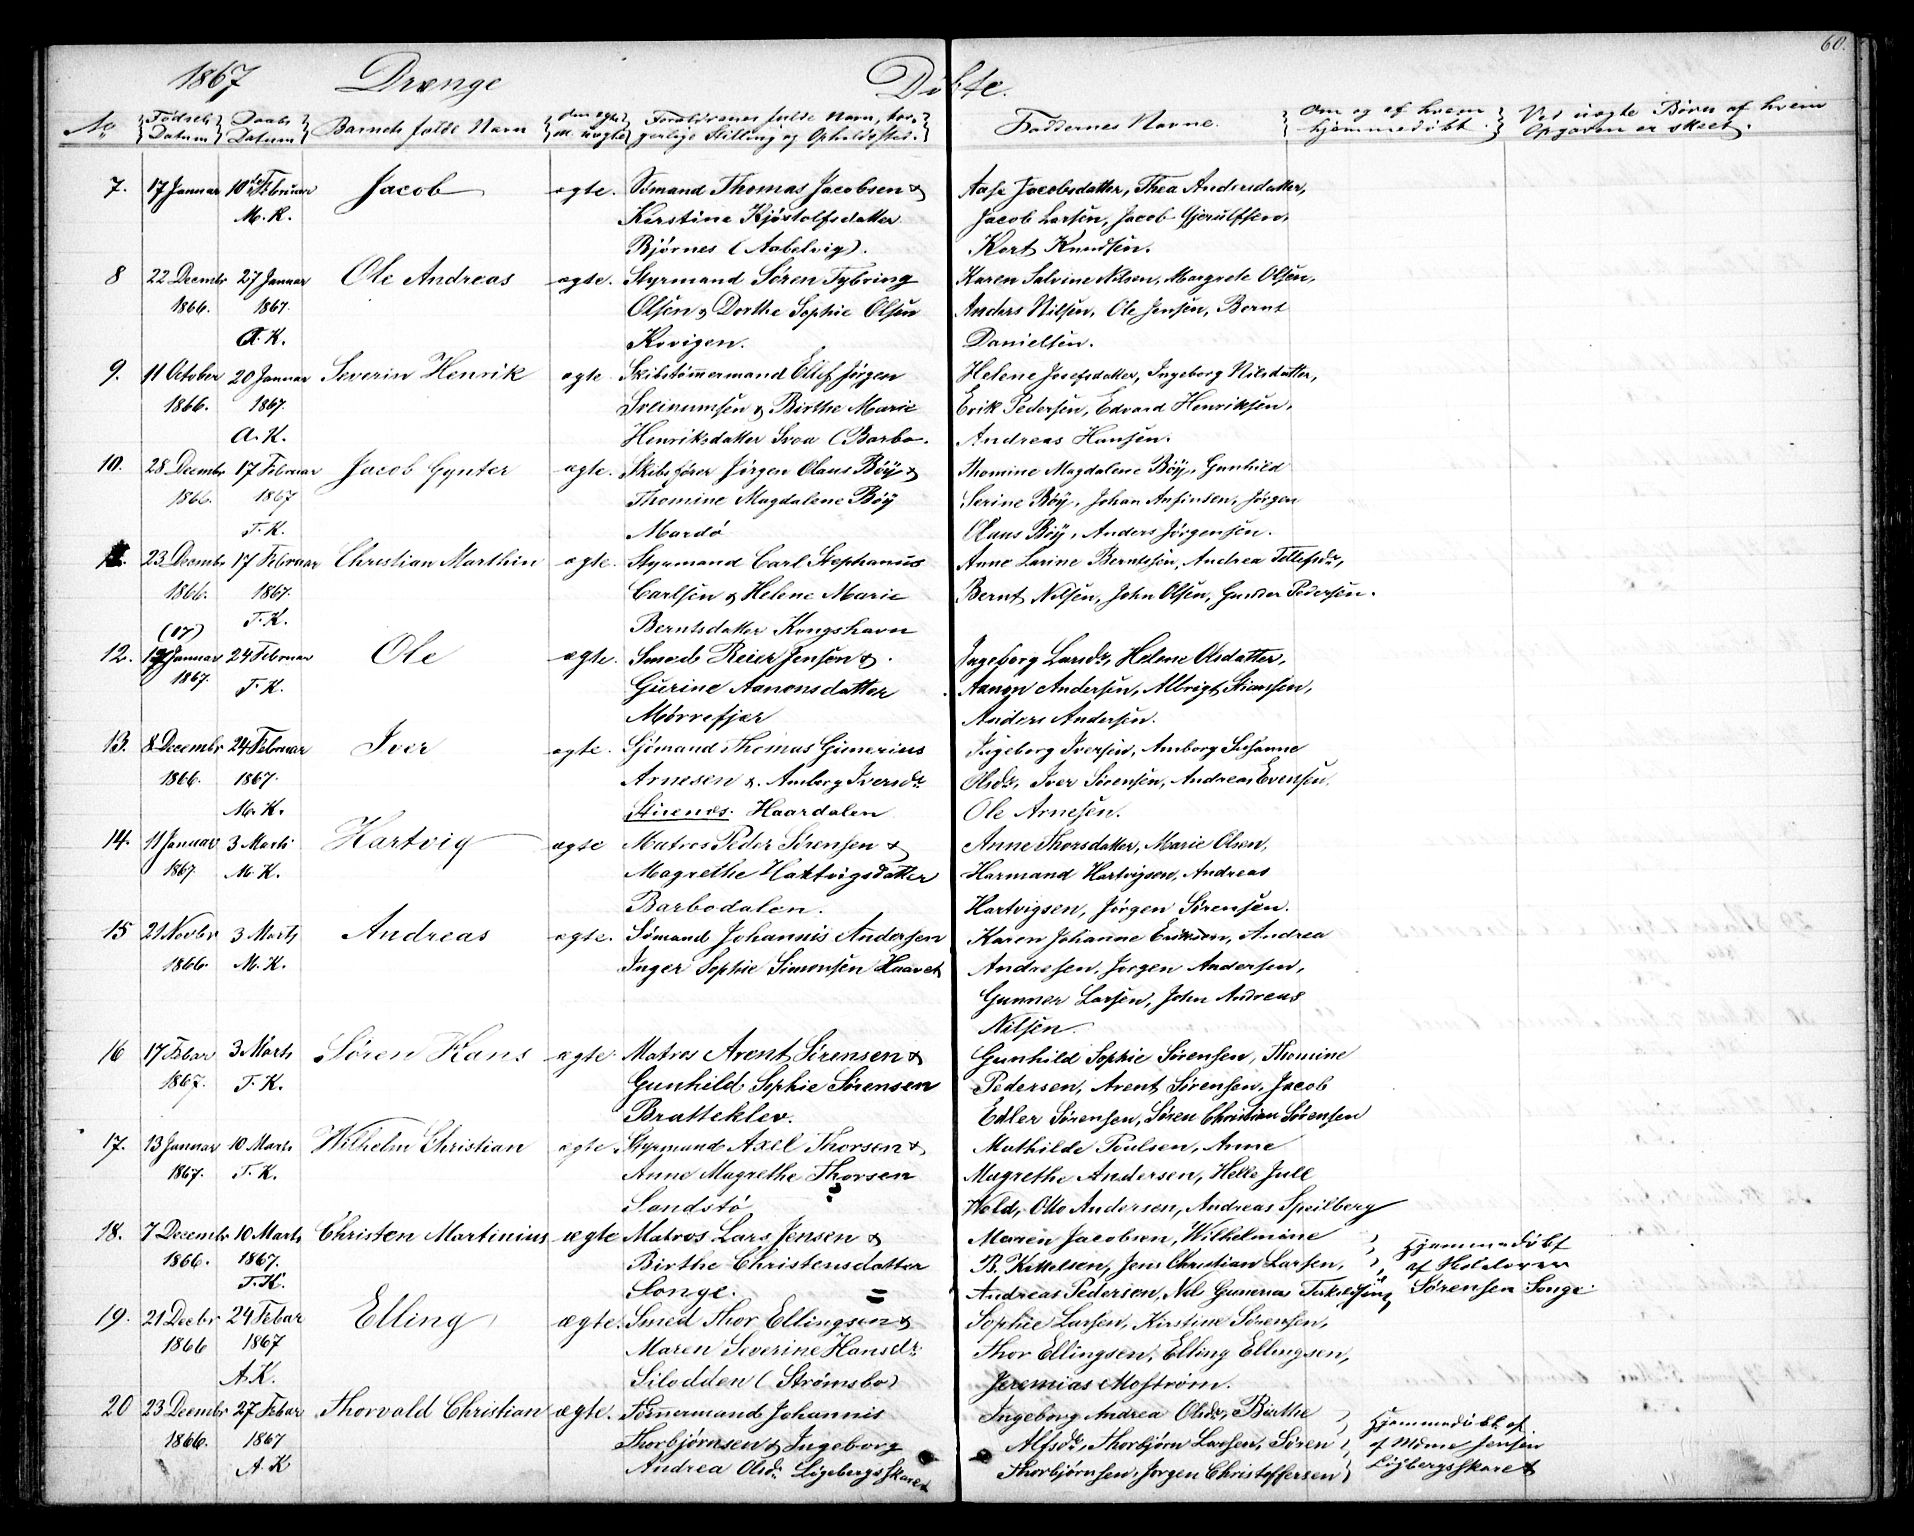 60.
1867 Drenge Døbte.
No Fødsels Datum Daabs Datum Barnets fulde Navn om ægte el. uægte Forældrenes fulde Navn, borgerlige Stilling og Opholdssted. Faddernes Navne. Om og af hvem hjemmedøbt. Ved uægte Børn af hvem Opgaven er skeet.
7. 17 Januar 10de Februar Jacob ægte. Sømand Thomas Jacobsen & Aase Jacobsdatter, Thea Andersdatter,
M. K. Kirstine Kjøstolfsdatter Jacob Larsen, Jacob Gjerulfsen,
Bjørnes (Aabelvig). Kort Knudsen.
8 22 Decembr 27 Januar Ole Andreas ægte. Styrmand Søren Tybring Karen Salvine Nilsen, Margrete Olsen,
1866. 1867. Olsen & Dorthe Sophie Olsen Anders Nilsen, Ole Jensen, Bernt
A. K. Kovigen. Danielsen.
9. 11 October 20 Januar Severin Henrik ægte Skibstømmermand Ellef Jørgen Helene Josefsdatter, Ingeborg Nilsdatter,
1866. 1867. Sveinumsen & Birthe Marie Erik Pedersen, Edvard Henriksen,
A. K. Henriksdatter Svoa (Barbo. Andreas Hansen.
10. 28 Decembr 17 Februar Jacob Gynter ægte. Skibsfører Jørgen Olaus Bøy & Thomine Magdalene Bøy, Gunhild
1866. 1867 Thomine Magdalene Bøy Serine Bøy, Johan Anfinsen, Jørgen
F. K. Mardø Olaus Bøy, Anders Jørgensen.
23 Decembr 17 Februar Christian Marthin ægte. Styrmand Carl Stephanius Anne Larine Berntsen, Andrea Tellefsdr,
1866. 1867. Carlsen & Helene Marie Bernt Nilsen, John Olsen, Gunder Pedersen.
(17) F. K. Berntsdatter Kongshavn
12. Januar 24 Februar Ole ægte. Smed Reier Jensen & Ingeborg Larsdr, Helene Olsdatter,
1867. F. K. Gurine Aanonsdatter Aanon Andersen, Albrigt Simonsen,
Mørrefjær Anders Andersen.
13. 8 Decembr 24 Februar Iver ægte. Sjømand Thomas Gunerius Ingeborg Iversen, Amborg Susanne
1866. 1867. Arnesen & Amborg Iversdr. Olsdr, Iver Sørensen, Andreas Evensen.
M. K. Stuenæs. Haardalen Ole Arnesen.
14. 11 Januar 3 Marts Hartvig ægte Matros Peder Sørensen & Anne Thorsdatter, Marie Olsen,
1867 M. K. Magrethe Hartvigsdatter Harmand Hartvigsen, Andreas
Barbodalen. Hartvigsen, Jørgen Sørensen.
15 21 Novbr 3 Marts Andreas ægte. Sømand Johannis Andersen Karen Johanne Eriksen, Andrea
1866. M. K. Inger Sophie Simonsen Haavet Andresen, Jørgen Andersen,
Gunner Larsen, John Andreas
Nilsen.
16 17 Febar 3 Marts Søren Hans ægte Matros Arent Sørensen & Gunhild Sophie Sørensen, Thomine
1867. F. K. Gunhild Sophie Sørensen Pedersen, Arent Sørensen, Jacob
Bratteklev. Edler Sørensen, Søren Christian Sørensen
17. 13 Januar 10 Marts Wilhelm Christian ægte. Styrmand Axel Thorsen & Mathilde Poulsen, Anne
1867. F. K. Anne Magrethe Thorsen Magrethe Andersen, Helle Jull
Sandstø Hold, Otto Andersen, Andreas Speilberg
18. 7 Decembr 10 Marts Christen Martinius ægte Matros Lars Jensen & Maren Jacobsen, Wilhelmine Hjemmedøbt
1866. 1867. Birthe Christensdatter B. Kittelsen, Jens Christian Larsen, af
F. K. Songe. Andreas Pedersen, Nils Gunerius Sørensen Songe.
19. 21 Decbr 24 Febar Elling ægte. Smed Thor Ellingsen & Sophie Larsen, Kirstine Sørensen,
1866 1867 Maren Severine Hansdr. Thor Ellingsen, Elling Ellingsen,
A. K. Silodden (Strømsbo) Jeremias Mostrøm.
20 23 Decembr 27 Febar Thorvald Christian ægte. Tømermand Johannis Ingeborg Andrea Olsdr, Birthe Hjemmedøbt af
1866. 1867 Thorbjørnsen & Ingeborg Alfsdr, Thorbjørn Larsen, Søren af Jensen
A. K Andrea Olsdr. Løgebergsskaret Thorbjørnsen, Jørgen Christoffersen Løgbergsskaret